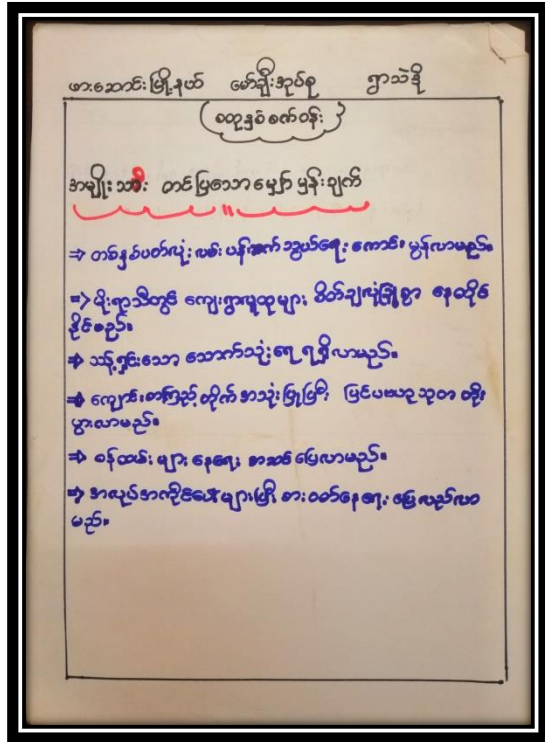 ဖားဆောင်းမြို့နယ် မော်ချီးအုပ်စု ရွာသဲဒို
စတုနှစ်စက်ဝန်း
အမျိုးသား တင်ပြသော မျှော်မှန်းချက်
⇒ တစ်နှစ်ပတ်လုံး လမ်းပန်းဆက်သွယ်ရေး ကောင်းမွန်လာမည်။
=> မိုးရာသီတွင် ကျေးရွာလူထုများ စိတ်ချလုံခြုံစွာ နေထိုင်
နိုင်မည်။
⇒ သန့်ရှင်းသော သောက်သုံးရေ ရရှိလာမည်။
⇒ ကျောင်းစာကြည့်တိုက် အသုံးပြုပြီး ပြင်ပဗဟုသုတ တိုး
ပွားလာမည်။
⇒ ဝန်ထမ်းများ နေရေး အဆင်ပြေလာမည်။
⇒ အလုပ်အကိုင်ပေါများပြီး စားဝတ်နေရေး ပြေလည်လာ
မည်။